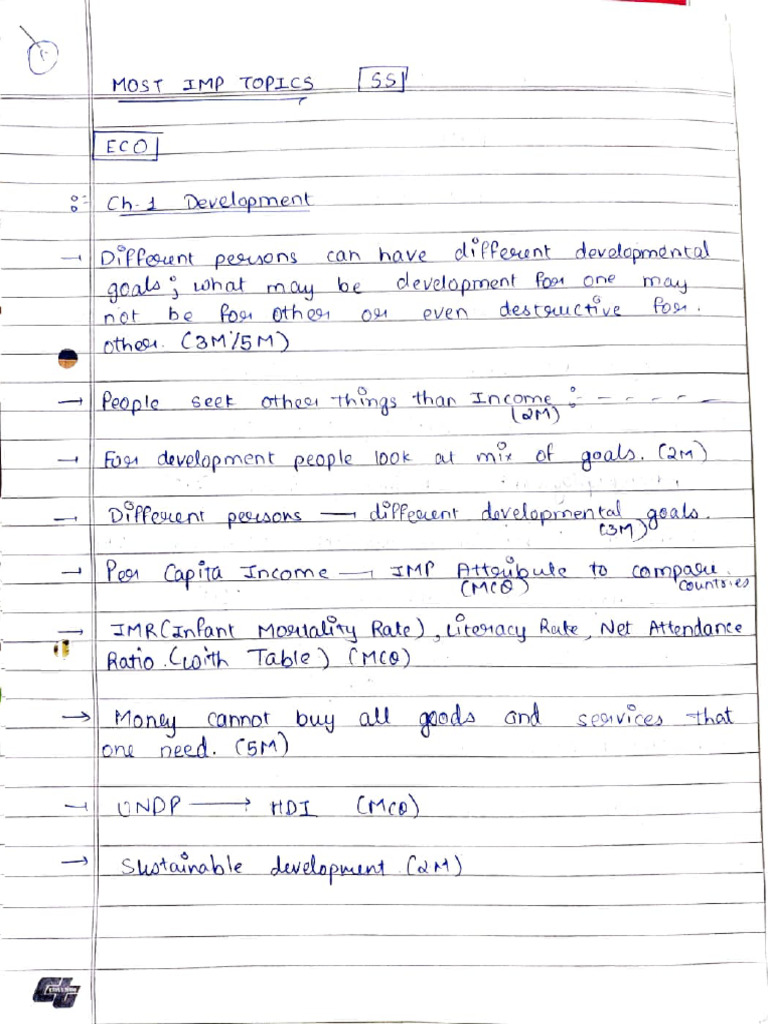 1.
MOST IMP TOPICS SS
ECO
Ch. 1 Development
→ Different persons can have different developmental
goals; what may be development for one may
not be for other or even destructive for.
other. (3M/5M)
→ People seek other things than Income :- - - - -
(2M)
→ For development people look at mix of goals. (2M)
→ Different persons — different developmental goals.
(3M)
→ Per Capita Income → IMP Attribute to compare
(MCQ) countries
→ IMR (Infant Mortality Rate), Literacy Rate, Net Attendance
Ratio. (with Table) (MCQ)
→ Money cannot buy all goods and services that
one need. (5M)
→ UNDP → HDI (MCQ)
→ Sustainable development (2M)